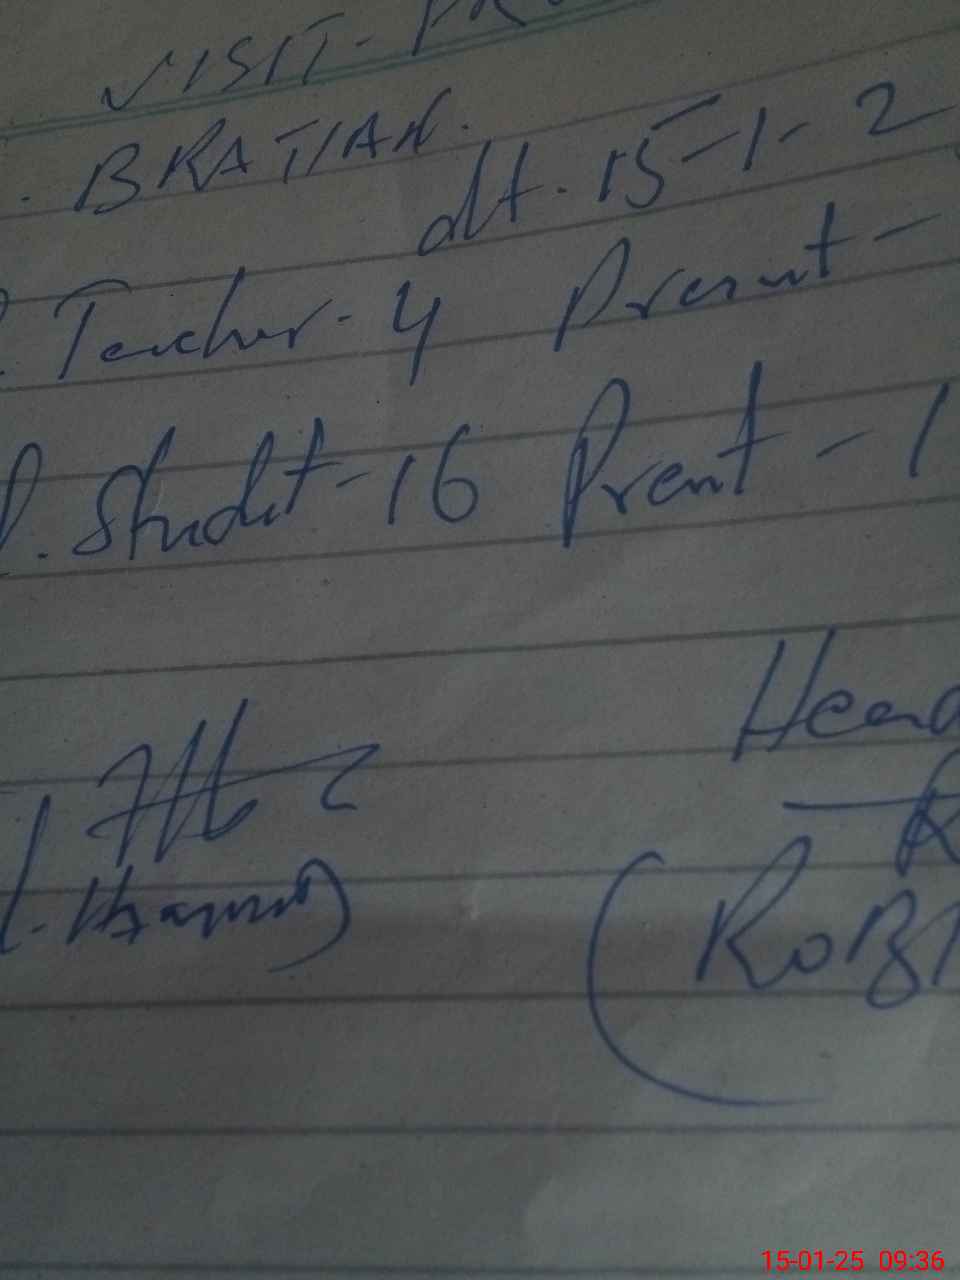 VISIT- PR
. BRATIAN.
dt. 15-1-2
. Teacher - 4 Present -
. Student - 16 Present - 1
Head
(ROBI
15-01-25 09:36